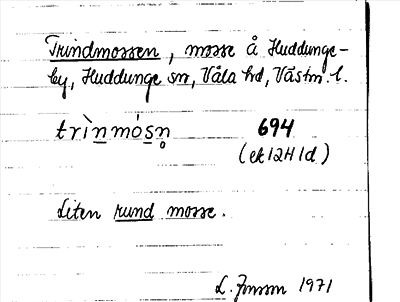 Trindmossen, mosse å Huddunge-
by, Huddunge sn, Våla hd, Västm. l.
trìn̲mós̲n̥ 694
(ek 12H 1d)
Liten rund mosse.
L. Jonsson 1971